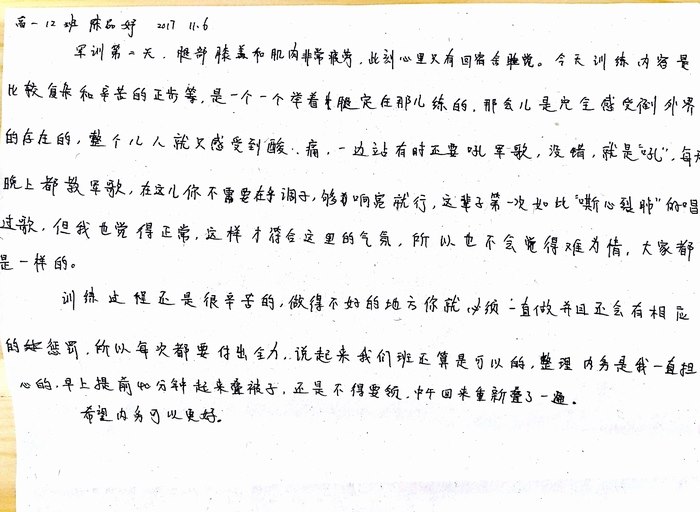 高一12班 陈品妤 2017 11.6
军训第二天,腿部膝盖和肌肉非常疲劳,此刻心里只有回宿舍睡觉。今天训练内容是
比较复杂和辛苦的正步等,是一个一个举着腿定在那儿练的,那会儿是完全感受到外界
的存在的,整个儿人就只感受到酸、痛,一边站有时还要吼军歌,没错,就是“吼”,每天
晚上都教军歌,在这儿你不需要在乎调子,够响亮就行,这辈子第一次如此“嘶心裂肺”的唱
过歌,但我也觉得正常,这样才符合这里的气氛,所以也不会觉得难为情,大家都
是一样的。
训练过程还是很辛苦的,做得不好的地方你就必须一直做并且还会有相应
的惩罚,所以每次都要付出全力,说起来我们班还算是可以的,整理内务是我一直担
心的,早上提前40分钟起来叠被子,还是不得要领,中午回来重新叠了一遍。
希望内务可以更好。